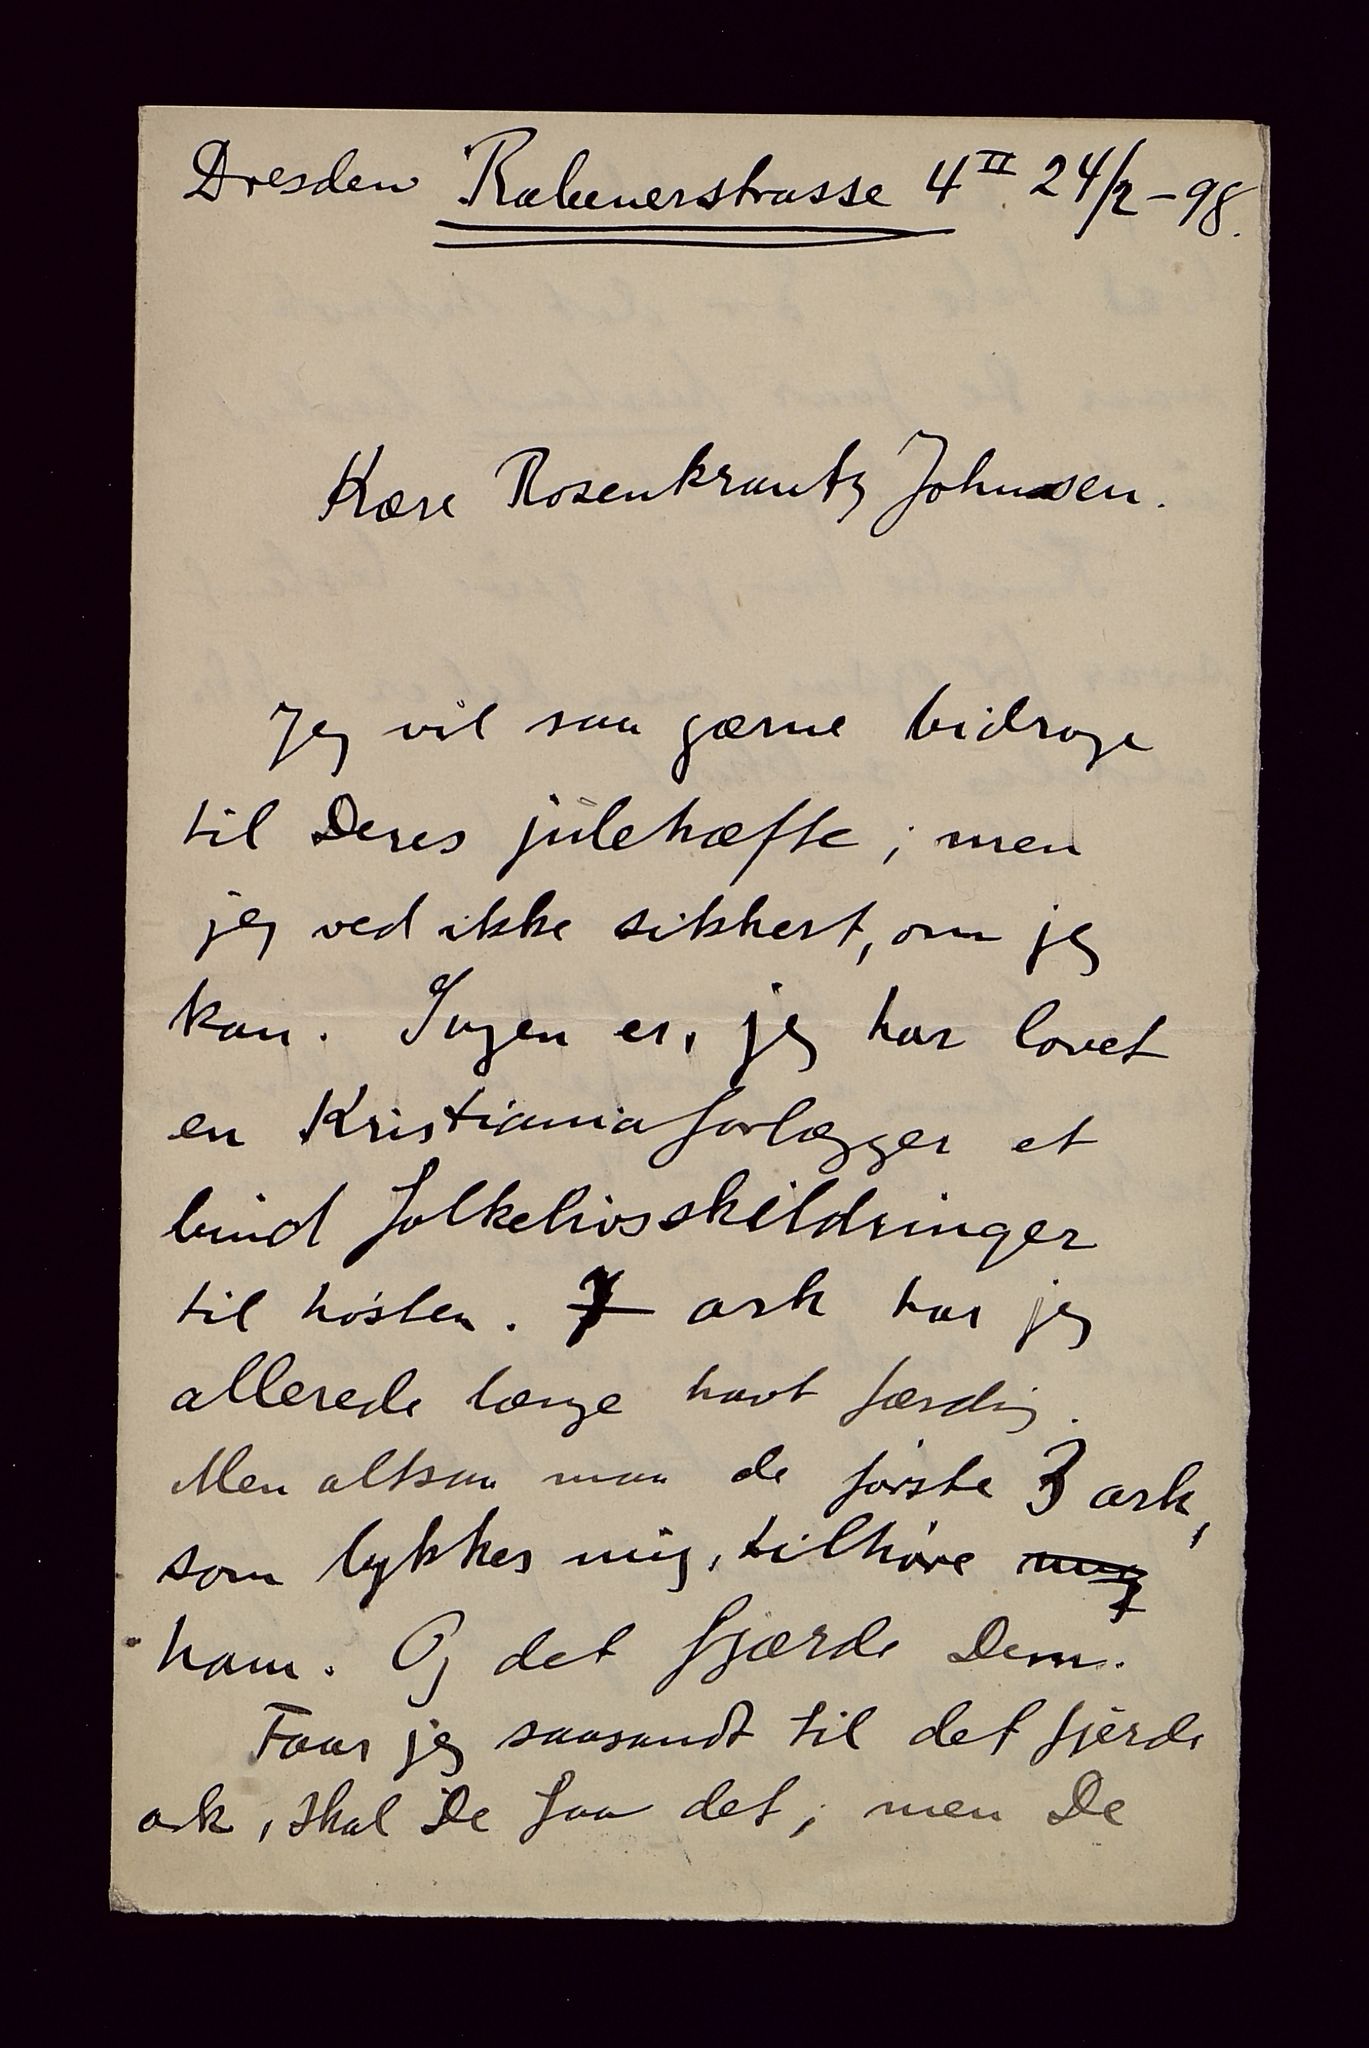 Dresden Rabenerstrasse 4 II 24/2-98.
Kære Rosenkrantz Johnsen.
Jeg vil saa gærne bidrage
til Deres julehæfte; men
jeg ved ikke sikkert, om jeg
kan. Sagen er, jeg har lovet
en Kristianiaforlægger et
bind folkelivsskildringer
til høsten. 7 ark har jeg
allerede længe havt færdig.
Men altsaa maa de første 3 ark,
som lykkes mig, tilhøre mig
ham. Og det fjærde Dem.
Faar jeg saasandt til det fjerde
ark, skal De faa det; men De